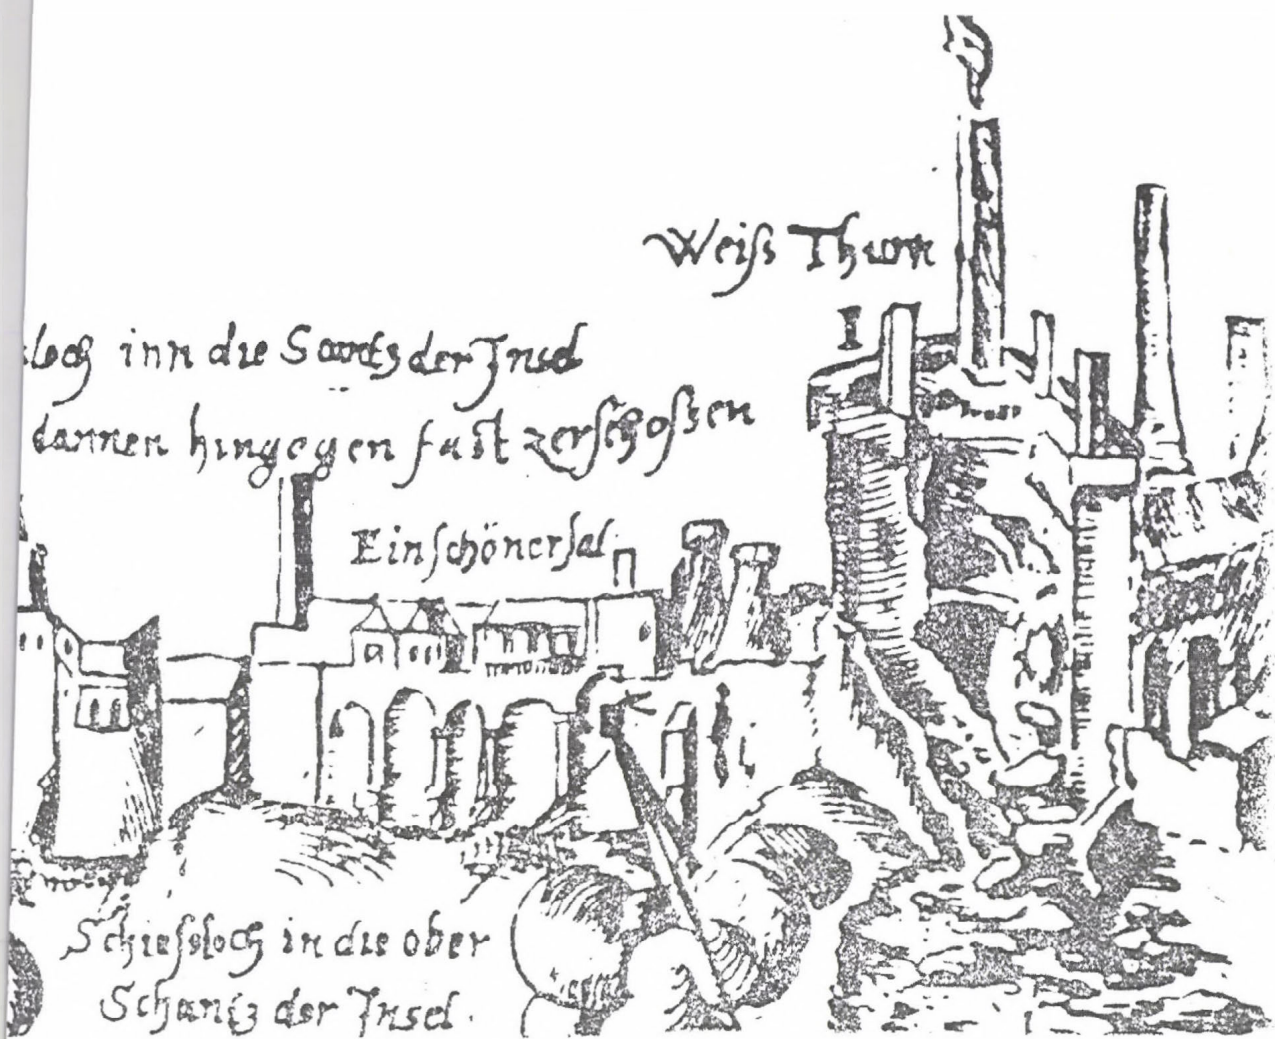 Weiß Thurn
I
loch inn die Schantz der Insel
dannen hingegen fast zerschoßen
Ein schöner sal.
Schiessloch in die ober
Schantz der Insel.